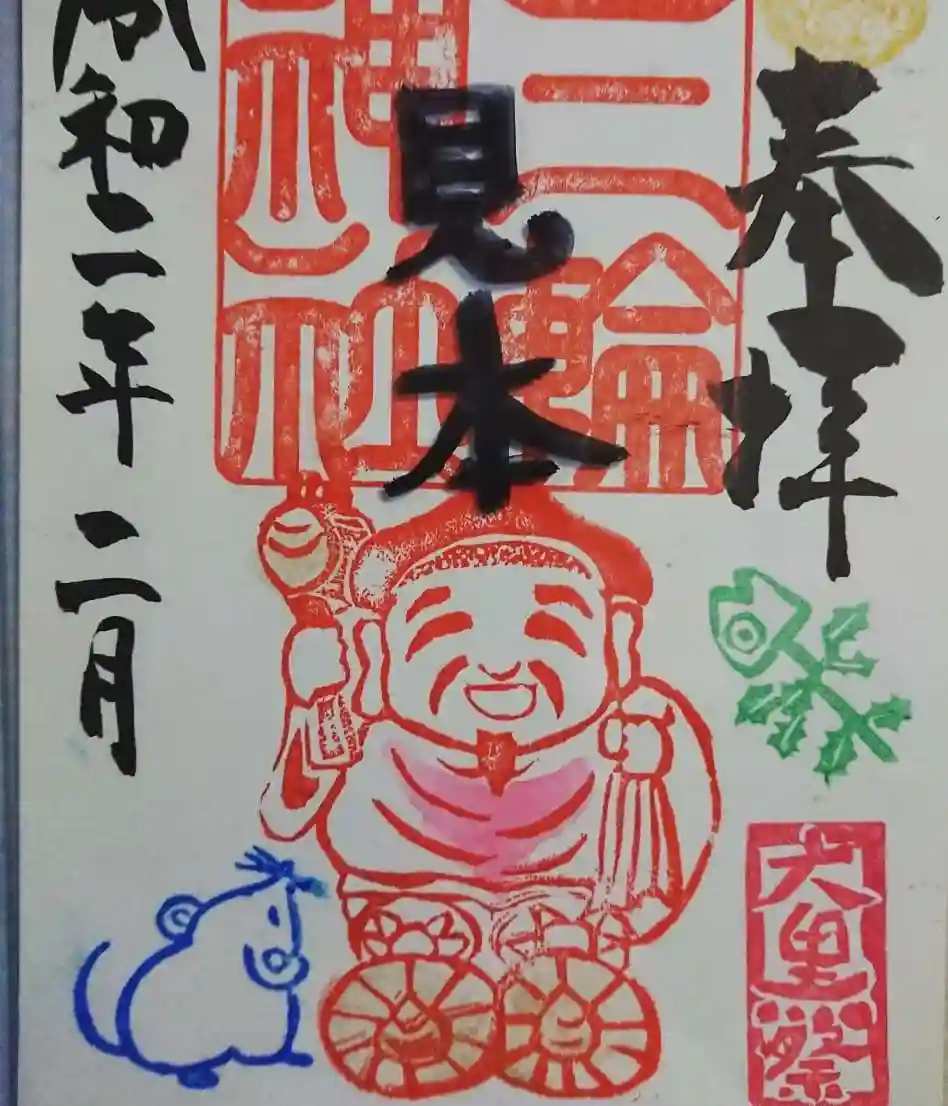 奉拝
三輪
神社
見本
令和二年二月
大黒祭